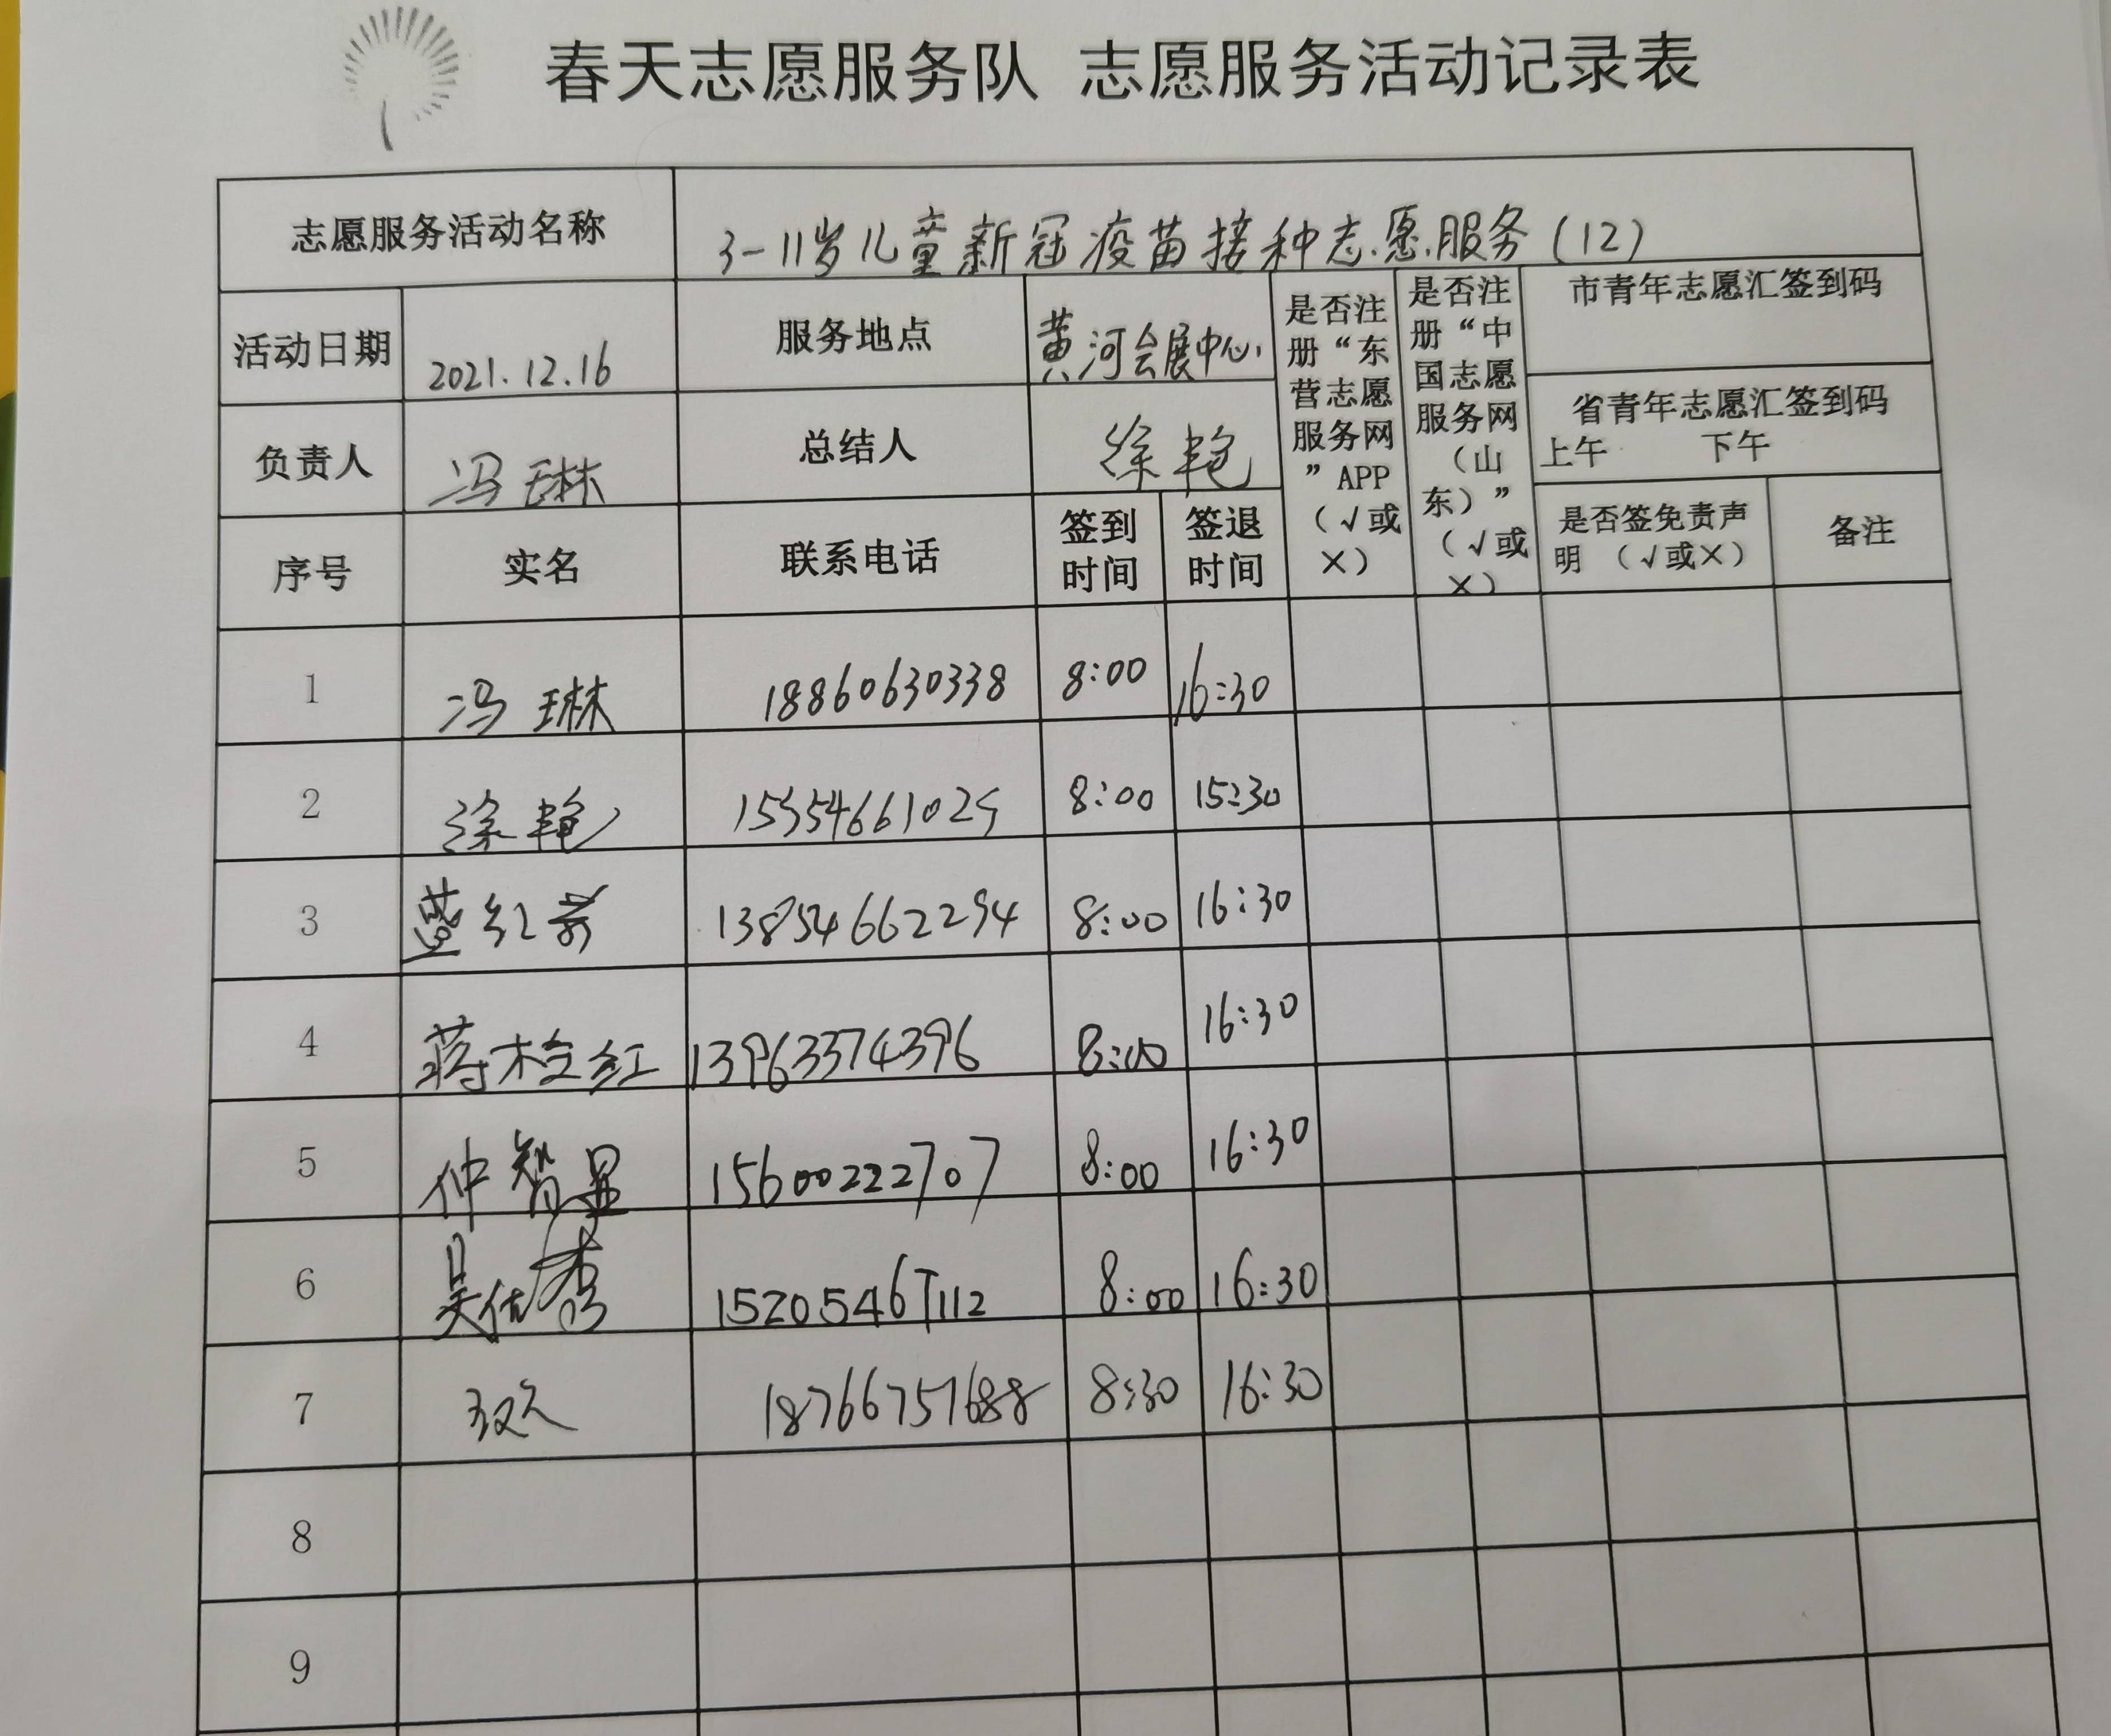 春天志愿服务队 志愿服务活动记录表
志愿服务活动名称 3-11岁儿童新冠疫苗接种志愿服务(12)
活动日期 2021.12.16 服务地点 黄河会展中心
是否注册“东营志愿服务网”APP（√或×）
是否注册“中国志愿服务网（山东）”（√或×）
市青年志愿汇签到码
负责人 冯琳 总结人 徐艳
省青年志愿汇签到码
上午 下午
序号 实名 联系电话 签到时间 签退时间 是否签免责声明（√或×） 备注
1 冯琳 18860630338 8:00 16:30
2 徐艳 15354661029 8:00 15:30
3 蓝红 13854662294 8:00 16:30
4 蒋桂红 13963374396 8:00 16:30
5 仲智显 15600222707 8:00 16:30
6 吴优秀 15205467112 8:00 16:30
7 18766757688 8:30 16:30
8
9